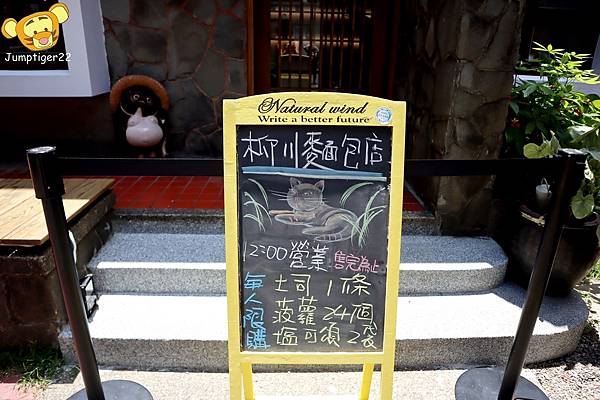 Jumptiger22
Natural wind
Write a better future
柳川麵包店
12:00營業 售完為止
每人限購
土司 1條
菠蘿 24個
塩可頌 2袋